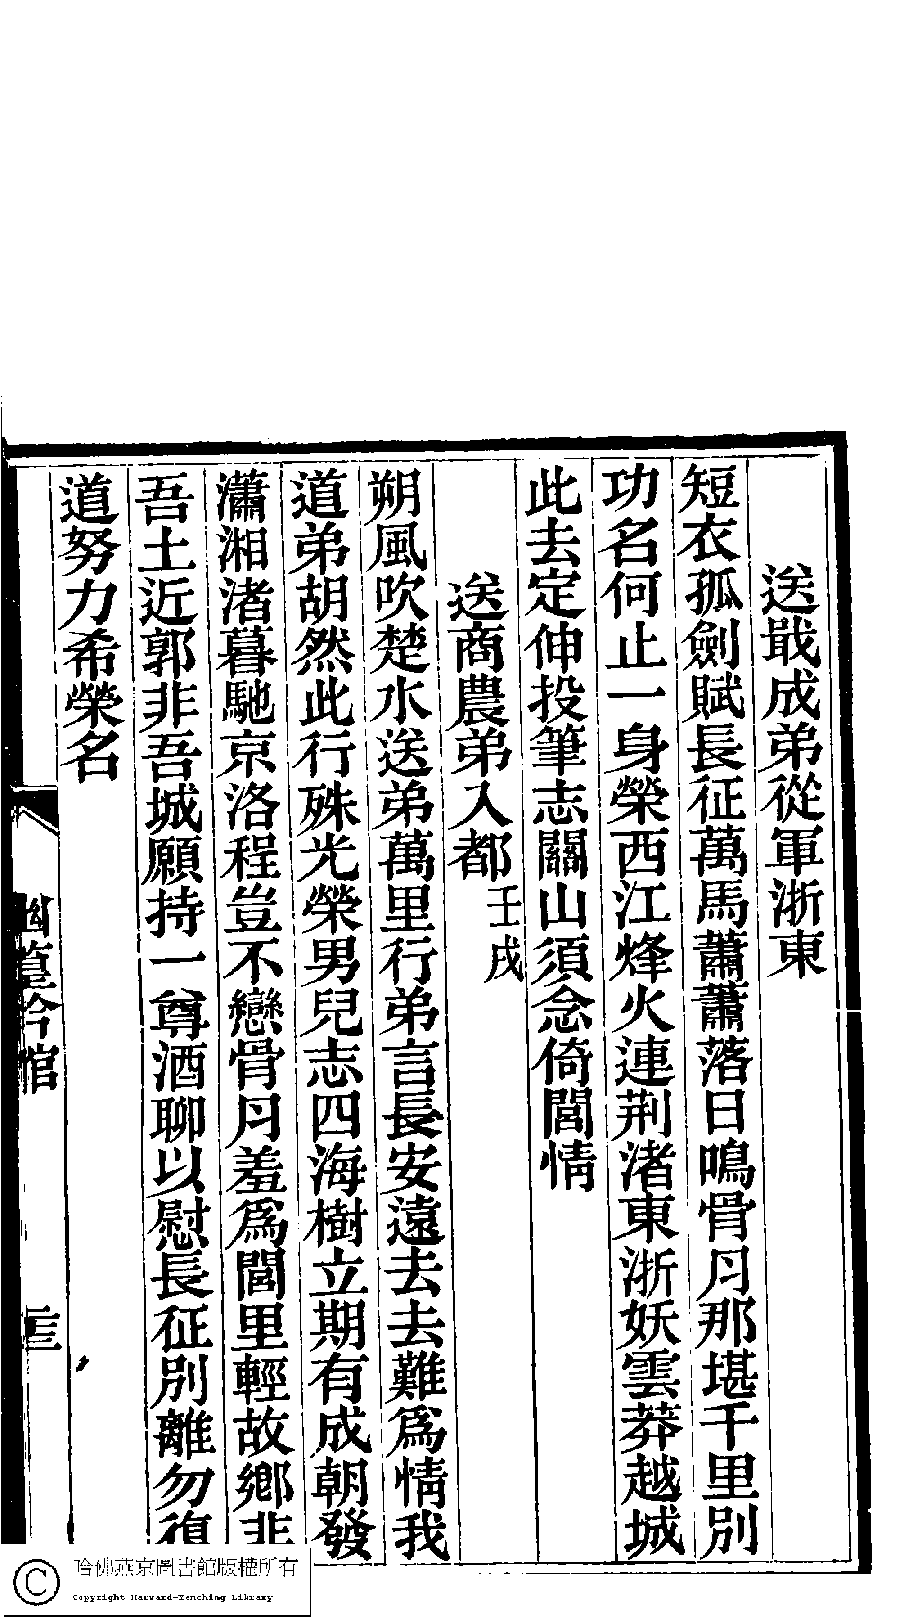 送戢成弟從軍浙東
短衣孤劍賦長征萬馬蕭蕭落日鳴骨月那堪千里別
功名何止一身榮西江烽火連荆渚東浙妖雲莽越城
此去定伸投筆志關山須念倚閭情
送商農弟入都 壬戌
朔風吹楚水送弟萬里行弟言長安遠去去難爲情我
道弟胡然此行殊光榮男兒志四海樹立期有成朝發
瀟湘渚暮馳京洛程豈不戀骨月羞爲閭里輕故鄉非
吾土近郭非吾城願持一尊酒聊以慰長征別離勿復
道努力希榮名
哈佛燕京圖書館版權所有
Copyright Harvard-Yenching Library